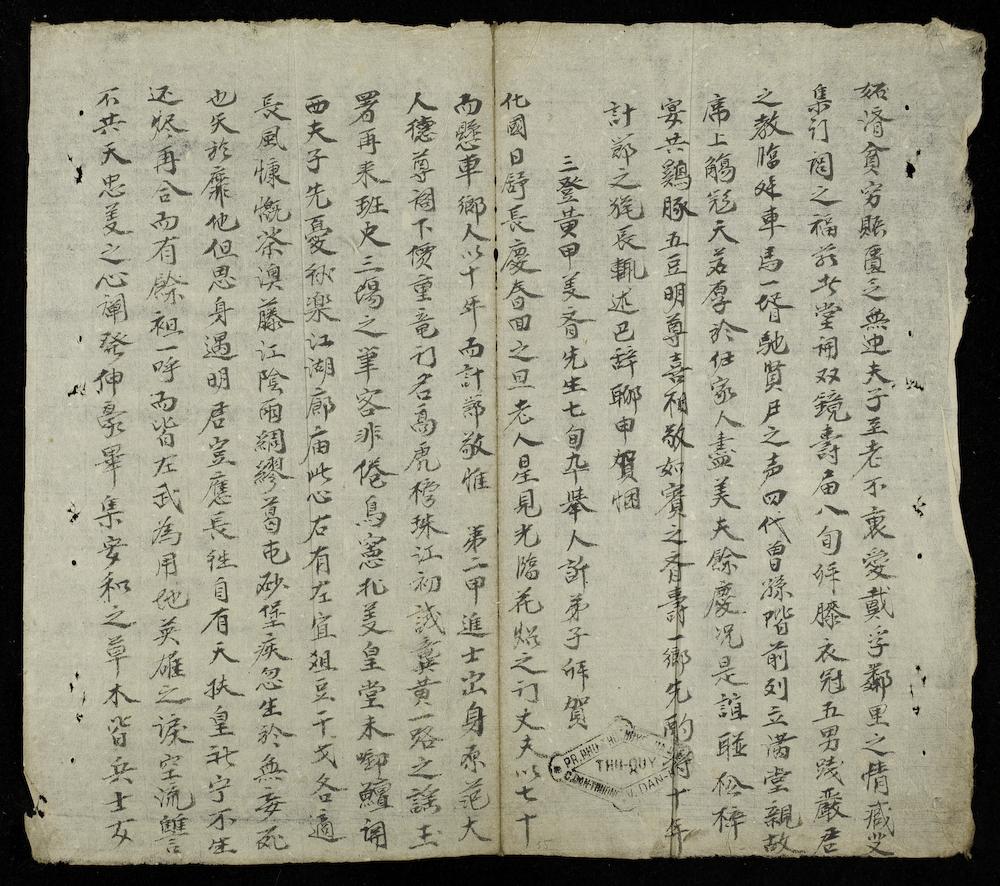 妬濟貧穷賑匱之無吏夫子至老不衷愛戴孚鄰里之情臧
集訂閏之福前北堂開双鏡壽届八旬拜膝衣冠五男践嚴君
之教臨姪車馬一壻馳賢尸之声四代曾孫階前列立满堂親故
席上觴冠天若厚於仕家人盡美夫餘慶况是誼聯松梓
宴共鷄豚五豆明尊喜相敬如賓之眉壽一鄉先酌得十年
計鄰之長輒述巴辞聊申賀悃
三登黄甲美眉先生七旬九舉人訢弟子拜賀
化國日舒長慶春田之旦老人星見光臨花甲之訂丈夫以七十
而懸車鄉人以十年而計鄰敬惟 第二甲進士出身原范大
人德尊閣下價重竜门名高虎榜珠江初試龔黄一路之謡玉
署再来班史三陽之筆客非倦鳥憲札美皇堂未啣鱣開
西夫子先憂秋楽江湖廊庙此心右有左宜俎豆干戈各適
長風慷慨荼澳藤江陰雨綢繆葛屯砂堡疾忽生於無妄死
也矢於靡他但思身遇明君豈應長往自有天扶皇社宁不生
还烬再合而有餘袒一呼而皆左武為用地英雄之淚空流讐
不共天忠義之心闡發伸豪畢集安和之草木皆兵士女
PR. PHU
THU-QUY